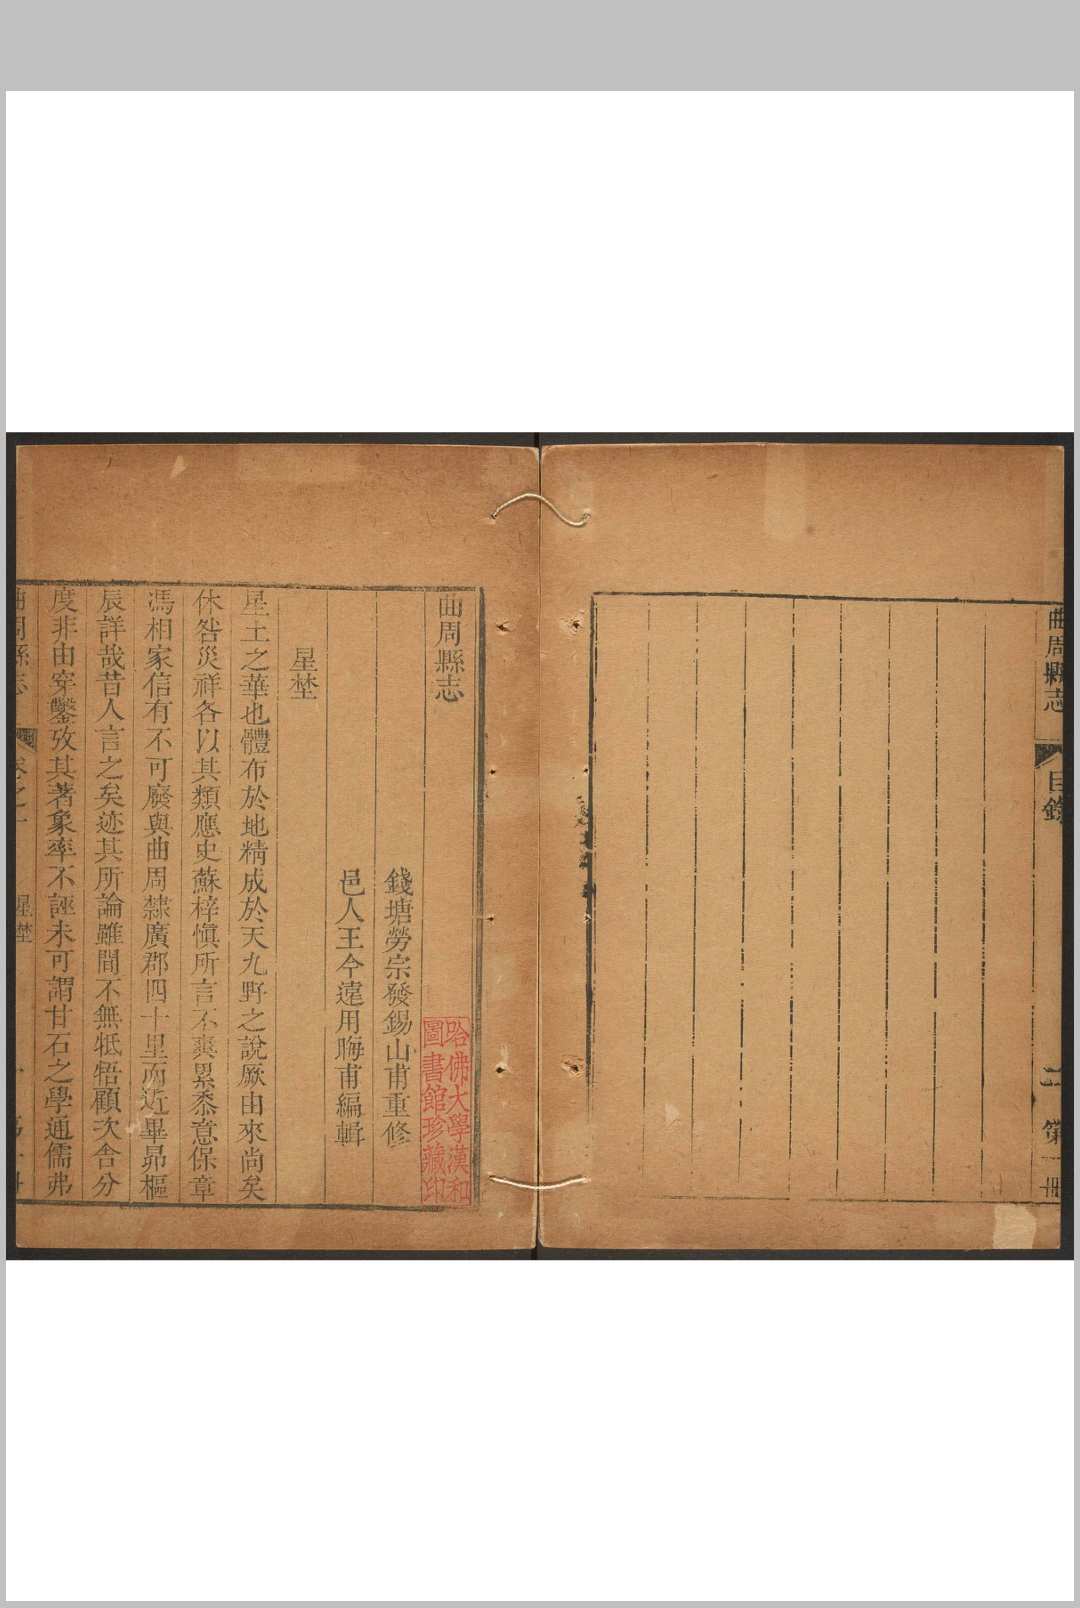 曲周縣志
目錄
二
第一冊
曲周縣志
錢塘勞宗發錫山甫重修
邑人王今遠用晦甫編輯
星埜
星土之華也體布於地精成於天九野之說厥由來尚矣
休咎災祥各以其類應史蘇梓慎所言不爽累黍意保章
馮相家信有不可廢與曲周隸廣郡四十里而近畢昴樞
辰詳哉昔人言之矣迹其所論雖間不無牴牾顧次舍分
度非由穿鑿攷其著象率不誣未可謂甘石之學通儒弗
曲周縣志
卷之一
星埜
哈佛大學漢和
圖書館珍藏印